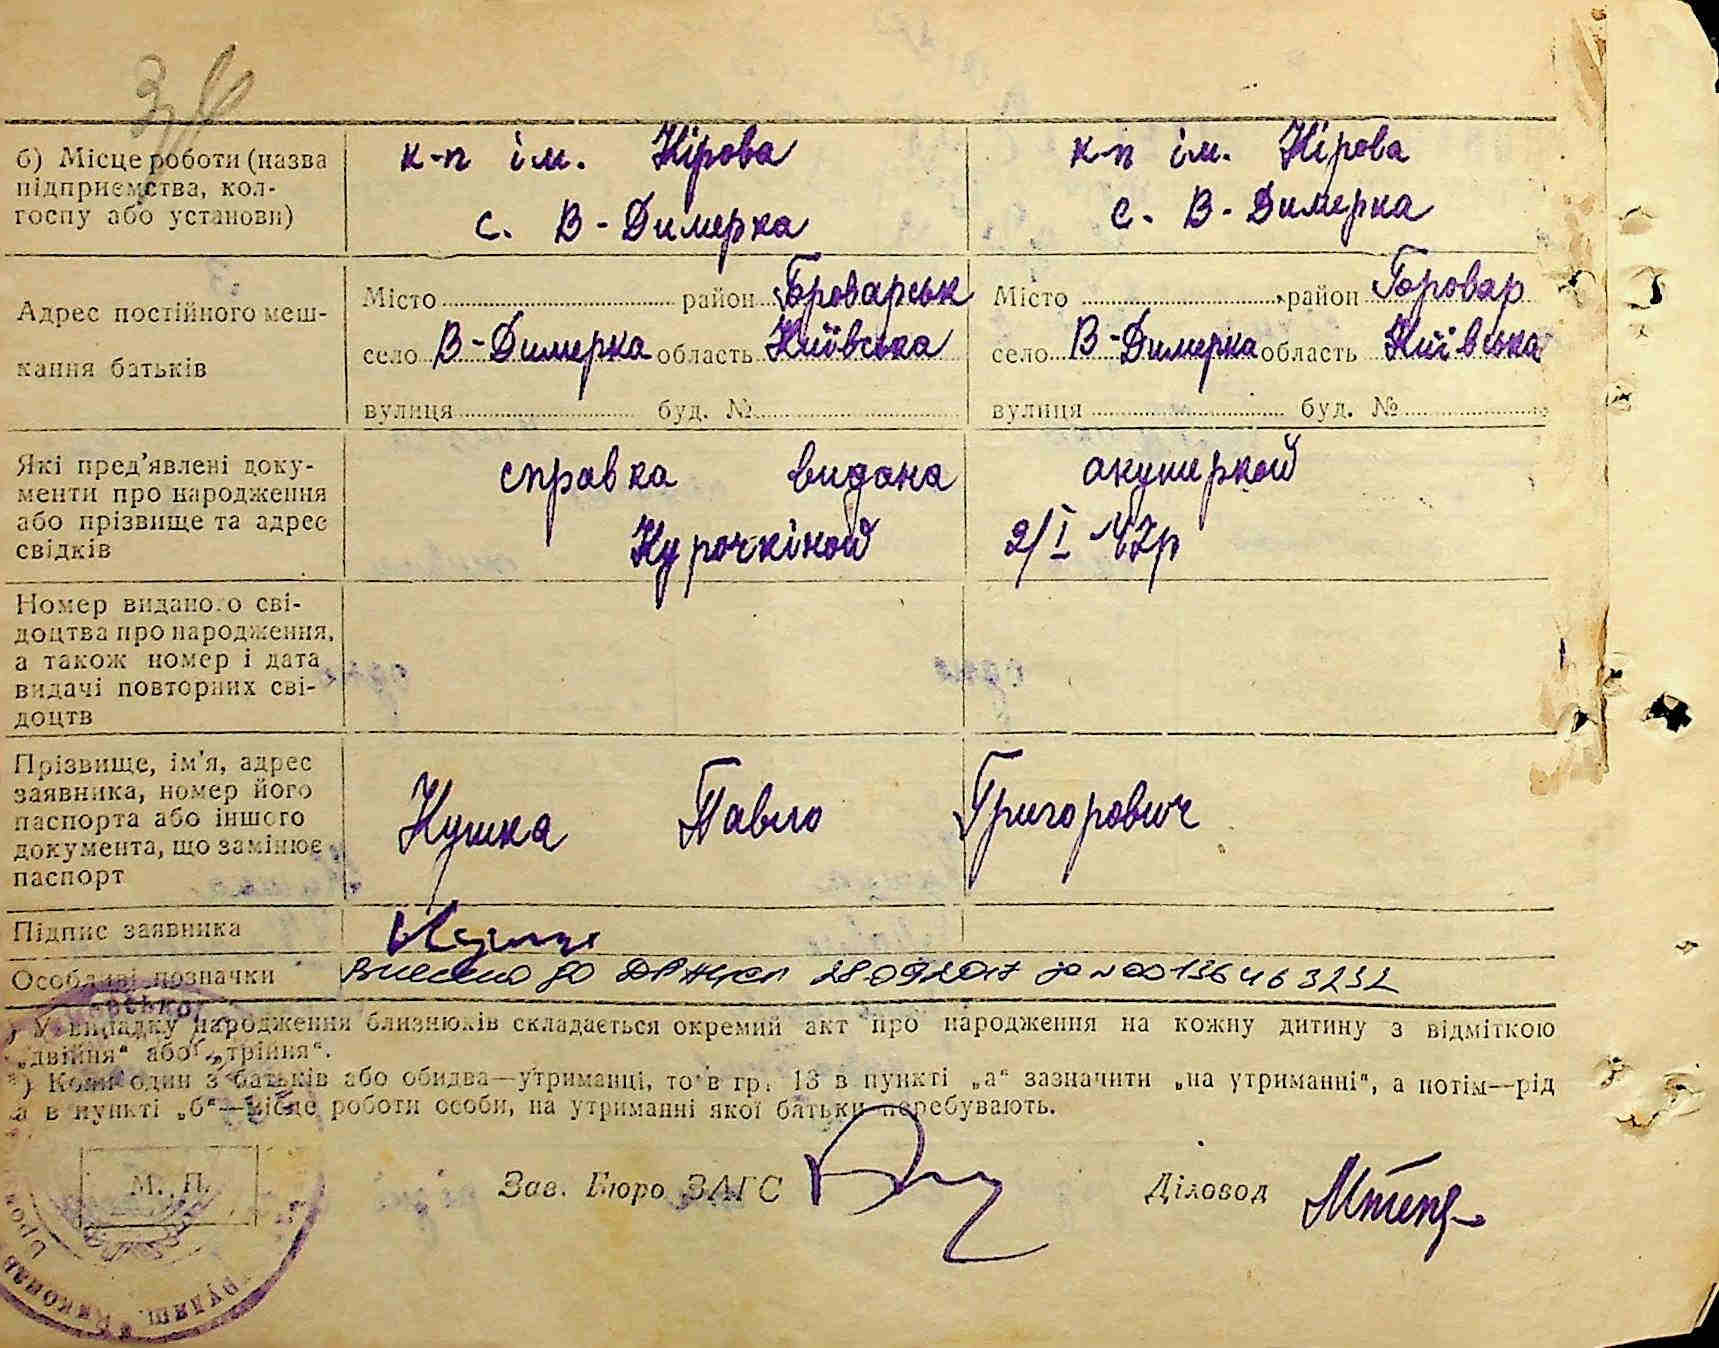 б) Місце роботи (назва підприємства, колгоспу або установи)
к-п ім. Кірова
с. В-Димерка
к-п ім. Кірова
с. В-Димерка
Адрес постійного мешкання батьків
Місто район Броварськ
село В-Димерка область Київська
вулиця буд. №
Місто район Бровар
село В-Димерка область Київська
вулиця буд. №
Які пред'явлені документи про народження або прізвище та адрес свідків
справка видана акушеркой
Курочкіной 2/I 47р
Номер виданого свідоцтва про народження, а також номер і дата видачі повторних свідоцтв
Прізвище, ім'я, адрес заявника, номер його паспорта або іншого документа, що замінює паспорт
Кушка Павло Григорович
Підпис заявника
Особливі позначки
Внесено до ДРАЦСГ 28.09.2017 за № 00136463232
У випадку народження близнюків складається окремий акт про народження на кожну дитину з відміткою
„двійня“ або „трійня“.
Коли один з батьків або обидва—утриманці, то в гр. 13 в пункті „а“ зазначити „на утриманні“, а потім—рід
а в пункті „б“—місце роботи особи, на утриманні якої батьки перебувають.
М. П.
Зав. Бюро ЗАГС
Діловод